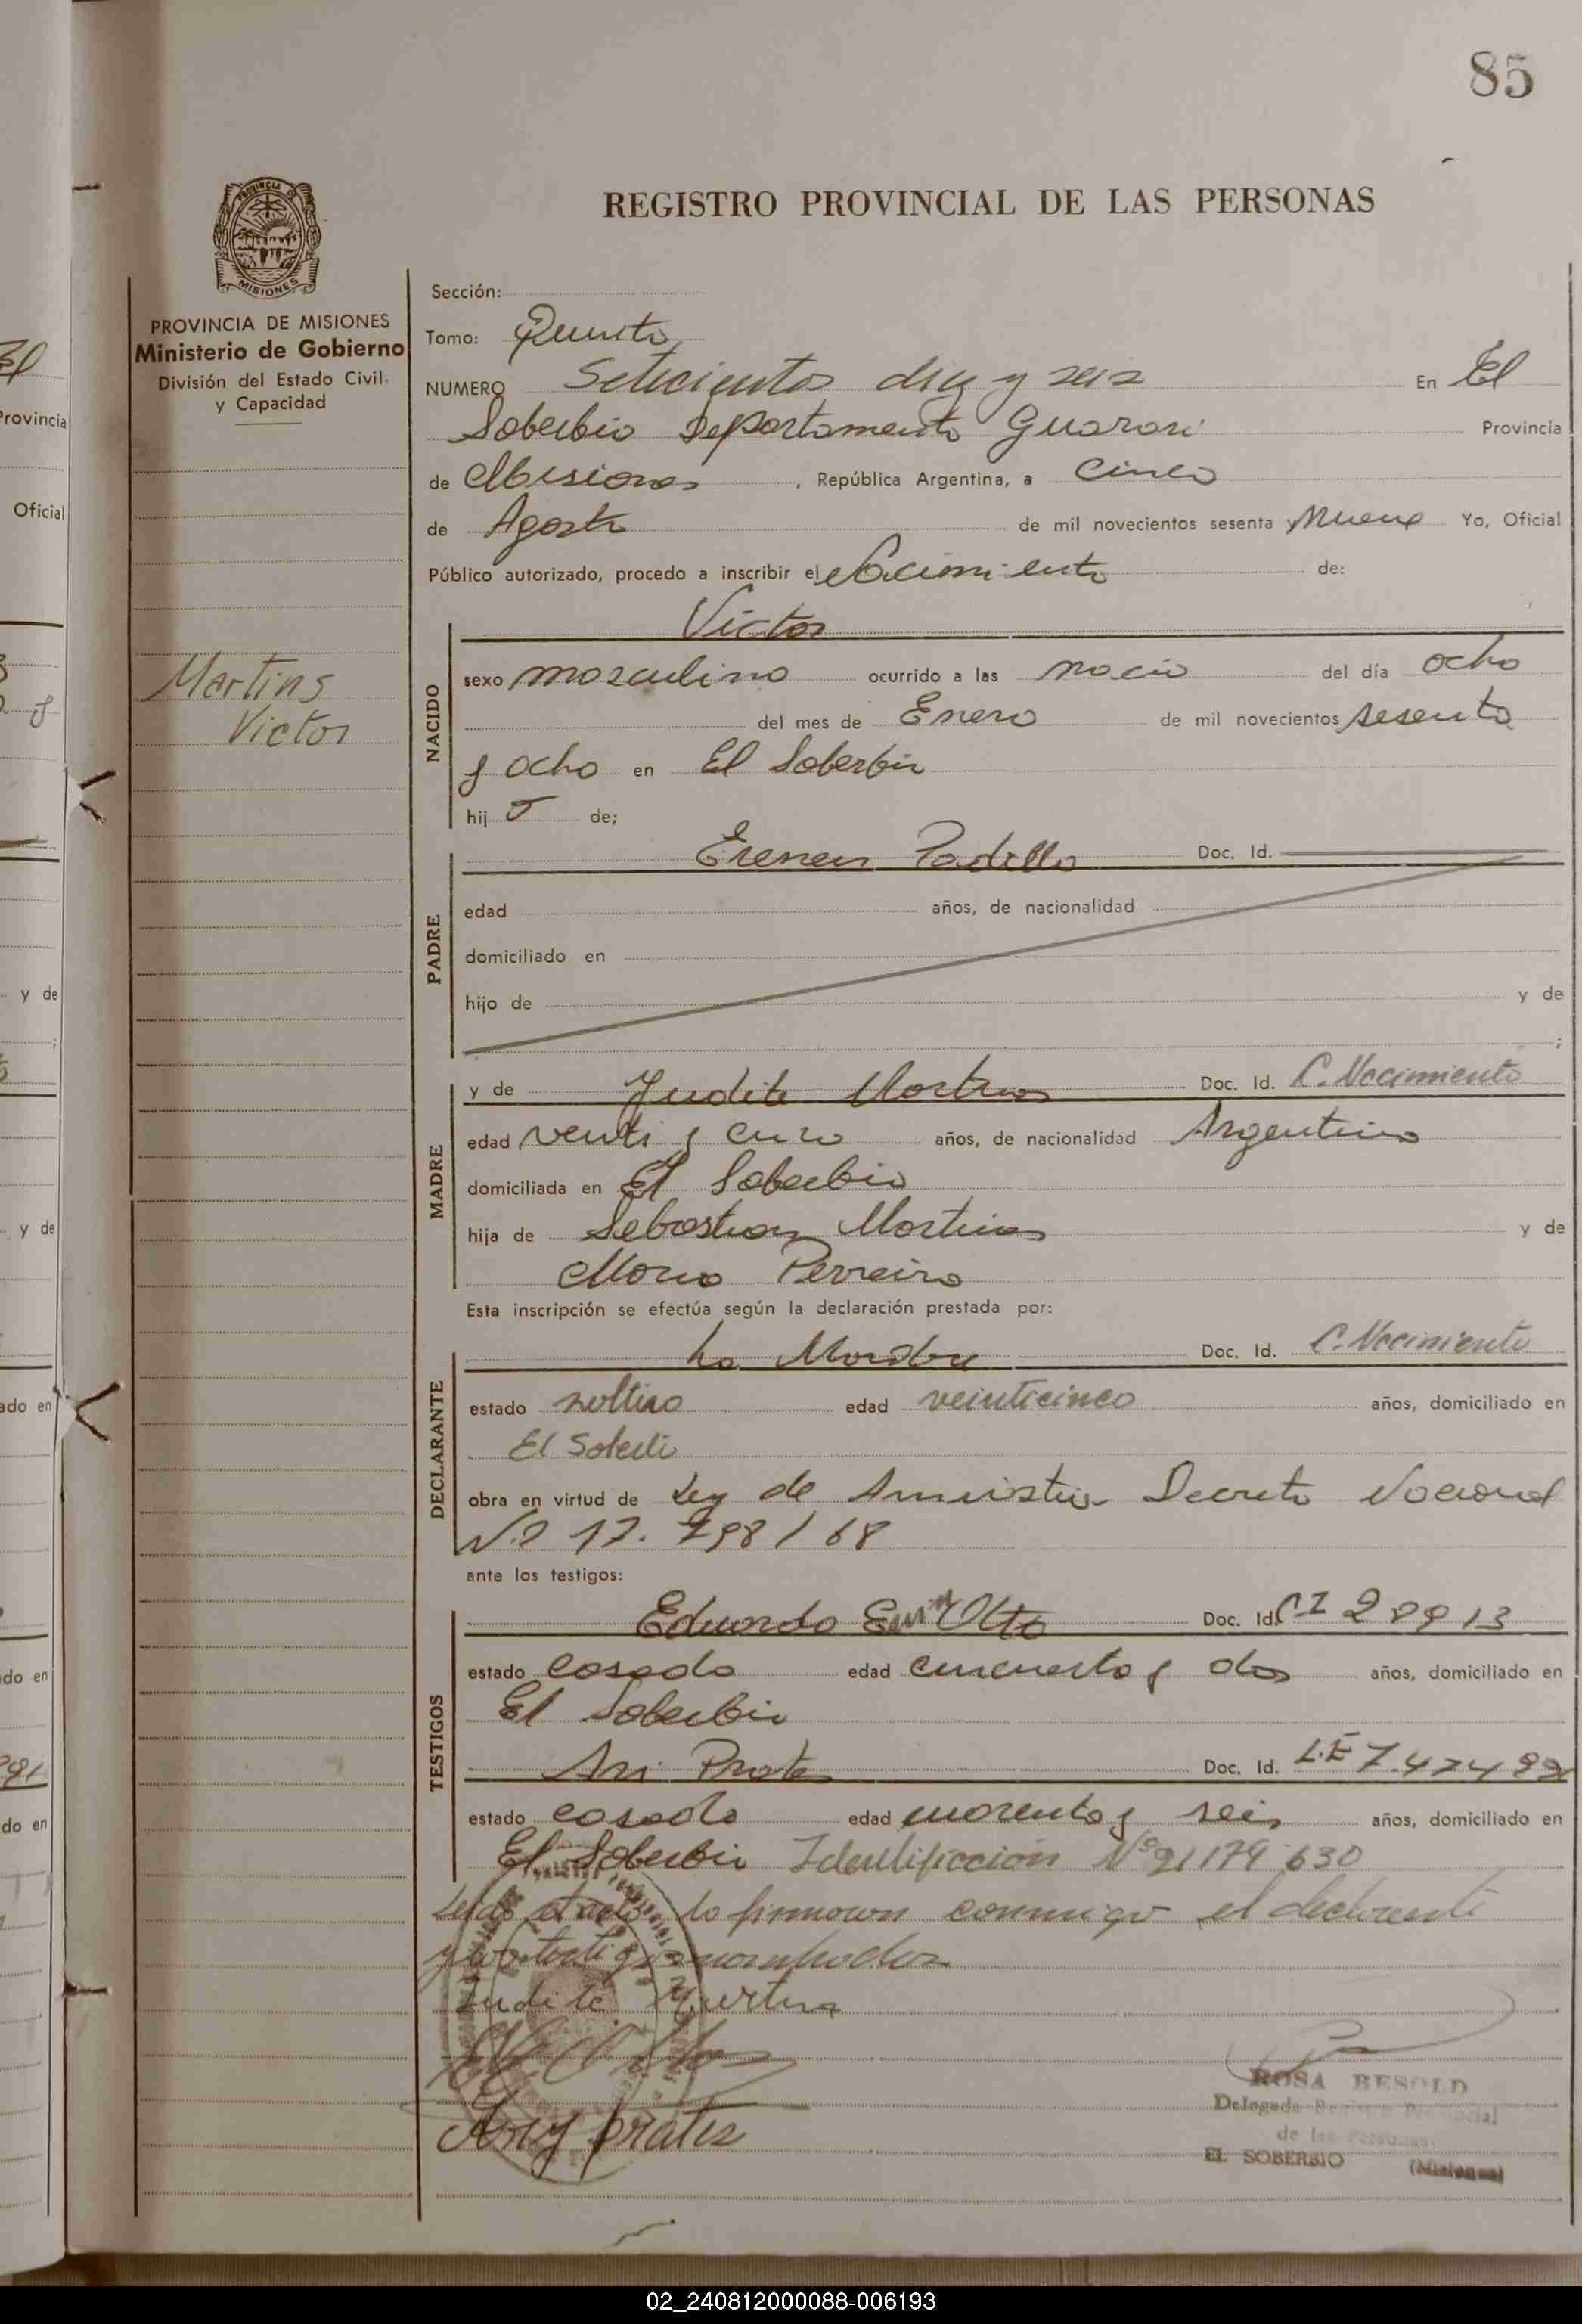 85
REGISTRO PROVINCIAL DE LAS PERSONAS
PROVINCIA DE MISIONES
Ministerio de Gobierno
División del Estado Civil
y Capacidad
Martins
Victor
Sección:
Tomo: Quinto
NUMERO Setecientos diez y seis En El
Soberbio Departamento Guarani Provincia
de Misiones, República Argentina, a Cinco
de Agosto de mil novecientos sesenta y Nueve Yo, Oficial
Público autorizado, procedo a inscribir el Nacimiento de:
NACIDO
Victor
sexo masculino ocurrido a las nacio del día ocho
del mes de Enero de mil novecientos sesenta
y ocho en El Soberbio
hij o de;
PADRE
Padilla Doc. Id.
edad años, de nacionalidad
domiciliado en
hijo de y de
;
MADRE
y de Judite Martins Doc. Id. C. Nacimiento
edad venti y cinco años, de nacionalidad Argentina
domiciliada en El Soberbio
hija de Sebastian Martins y de
Maria Perreira
Esta inscripción se efectúa según la declaración prestada por:
DECLARANTE
La Madre Doc. Id. C. Nacimiento
estado soltera edad veinticinco años, domiciliado en
El Soberbio
obra en virtud de Ley de Amnistia Decreto Nacional
Nº 17. 798 / 68
ante los testigos:
TESTIGOS
Eduardo Otto Doc. Id. C I 28913
estado casado edad cincuenta y dos años, domiciliado en
El Soberbio
Ari Prates Doc. Id. L.E 7.474
estado casado edad cuarenta y seis años, domiciliado en
El Soberbio Identificación Nº 21179 630
Leido el acta, la firman conmigo el declarante
y los testigos nombrados
Judite Martins
Ary prates
ROSA BESOLD
Delegada Registro Provincial
de las Personas
EL SOBERBIO (Misiones)
Provincia
Oficial
y de
y de
ado en
do en
do en
02_240812000088-006193